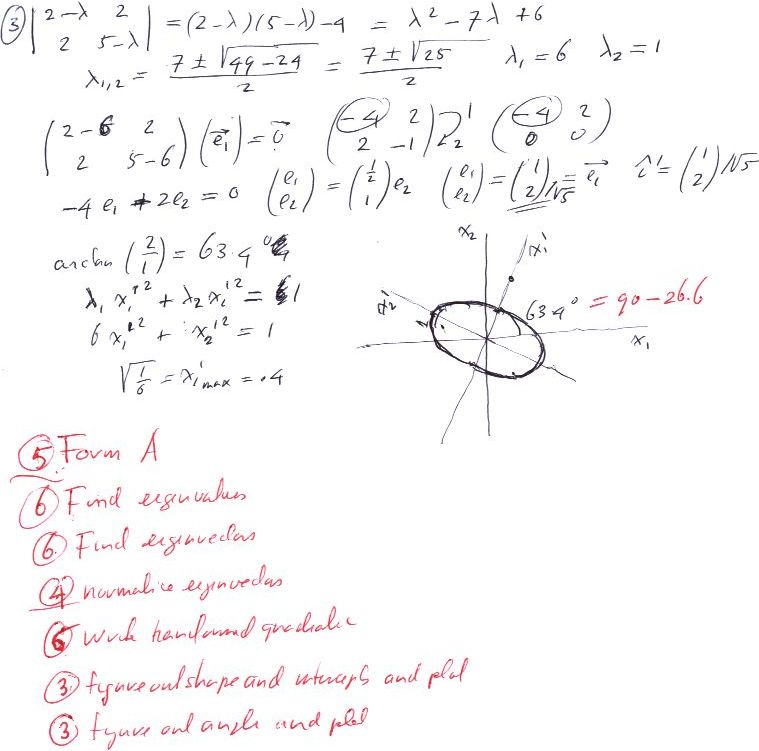 ③ | 2-λ 2 | = (2-λ)(5-λ)-4 = λ² - 7λ + 6
| 2 5-λ |
λ₁,₂ = (7 ± √(49-24))/2 = (7 ± √25)/2 λ₁ = 6 λ₂ = 1
( 2-6 2 ) ( e⃗₁ ) = 0⃗ ( -4 2 ) ( -4 2 )
( 2 5-6 ) ( 2 -1 ) ( 0 0 )
-4 e₁ + 2e₂ = 0 (e₁ e₂) = (1/2 1) e₂ (e₁ e₂) = (1 2)/√5 = e⃗₁ î' = (1 2)/√5
arctan (2/1) = 63.4°
λ₁ x₁'² + λ₂ x₁'² = 1
6 x₁'² + x₂'² = 1
√(1/6) = x₁' max = .4
x₂
x₁'
x₂'
63.4° = 90-26.6
x₁
⑤ Form A
⑥ Find eigenvalues
⑥ Find eigenvectors
④ normalize eigenvectors
⑥ Write transformed quadratic
③ figure out shape and intercepts and plot
③ figure out angle and plot